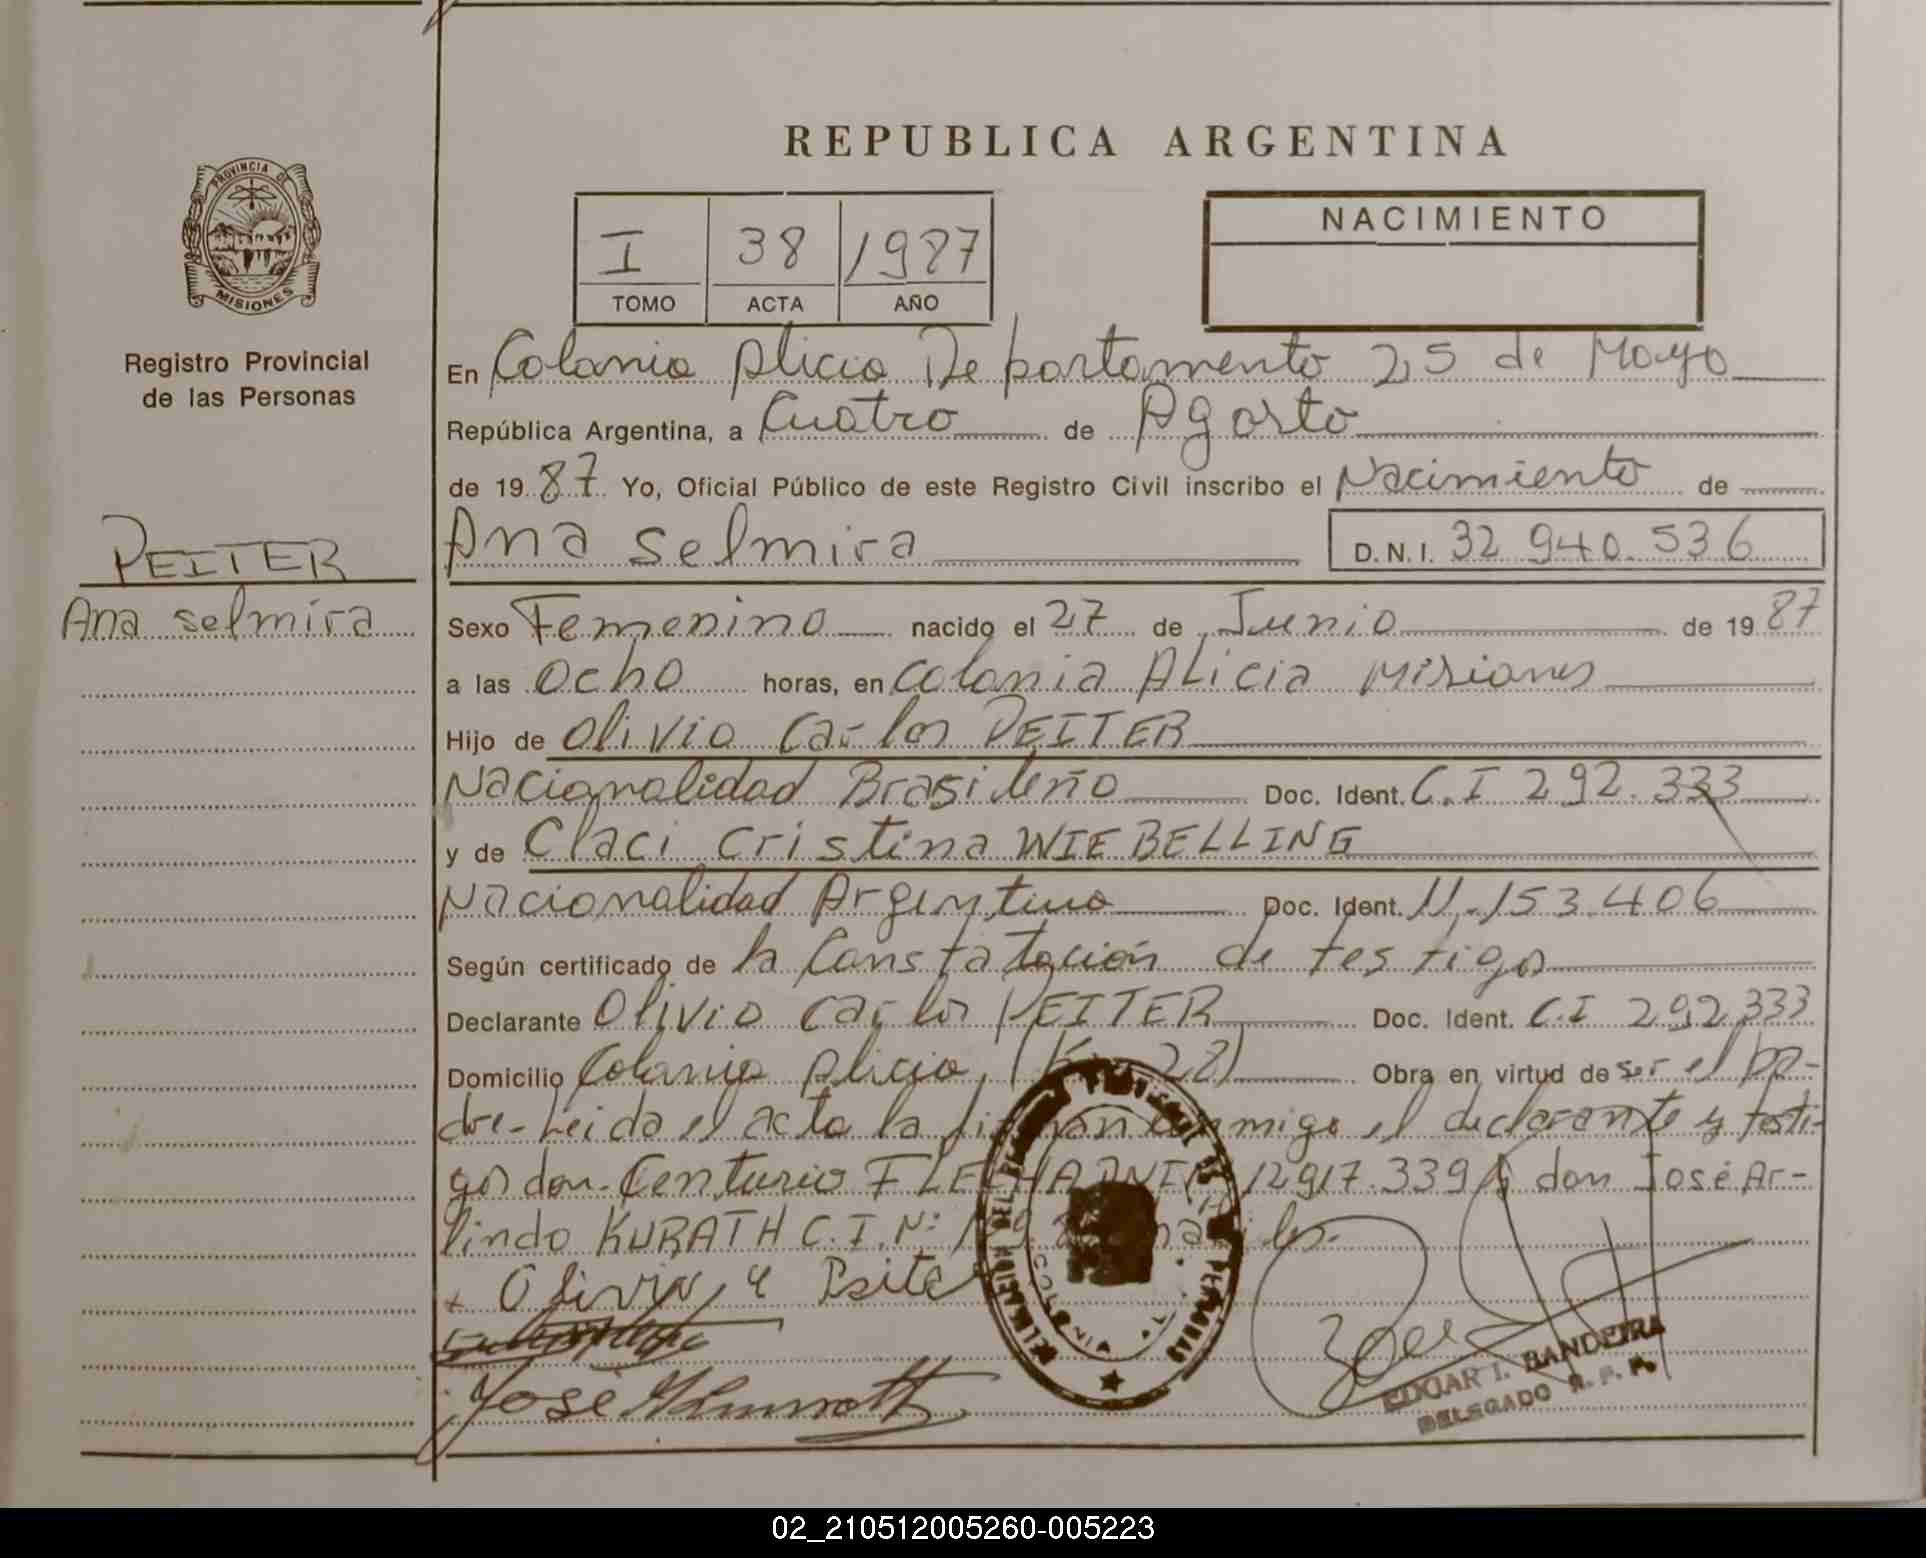 REPUBLICA ARGENTINA
PROVINCIA DE
MISIONES
I 38 1987
TOMO ACTA AÑO
NACIMIENTO
Registro Provincial
de las Personas
En Colonia Alicia Departamento 25 de Mayo
República Argentina, a Cuatro de Agosto
de 1987 Yo, Oficial Público de este Registro Civil inscribo el Nacimiento de
PEITER
Ana Selmira
Ana Selmira D.N.I. 32 940.536
Sexo Femenino nacido el 27 de Junio de 1987
a las Ocho horas, en Colonia Alicia Misiones
Hijo de Olivio Carlos PEITER
Nacionalidad Brasileño Doc. Ident. C.I 292.333
y de Claci Cristina WIEBELLING
Nacionalidad Argentina Doc. Ident. 11.153.406
Según certificado de la Constatación de testigos
Declarante Olivio Carlos PEITER Doc. Ident. C.I 292.333
Domicilio Colonia Alicia (Km 28) Obra en virtud de ser el pa-
dre-Leida el acta la firman conmigo el declarante y testi-
gos don Centurio 12917.339 y don José Ar-
lindo KURATH C.I. Nº
José
EDGAR I. BANDEIRA
DELEGADO R. P. P.
02_210512005260-005223